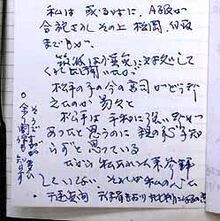 私は 或る時に、A級が
合祀され その上 松岡、白取
までもが、
筑波は慎重に対処して
くれたと聞いたが
松平の子の今の宮司がどう考
えたのか 易々と
松平は平和に強い考が
あったと思うのに 親の心子知
らずと思っている
だから 私あれ以来参拝
していない それが私の心だ